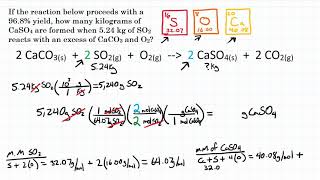 If the reaction below proceeds with a
96.8% yield, how many kilograms of
CaSO₄ are formed when 5.24 kg of SO₂
reacts with an excess of CaCO₃ and O₂?
16 S 32.07
8 O 16.00
20 Ca 40.08
2 CaCO₃(s) + 2 SO₂(g) + O₂(g) --> 2 CaSO₄(s) + 2 CO₂(g)
5.24kg ?kg
5.24kg SO₂ (10³ g / 1 kg) = 5,240g SO₂
5,240g SO₂ (1 mol SO₂ / 64.07g SO₂) (2 mol CaSO₄ / 2 mol SO₂) (g CaSO₄ / 1 mol CaSO₄) = g CaSO₄
M.M. SO₂
S + 2(O) = 32.07g/mol + 2(16.00g/mol) = 64.07g/mol
mm of CaSO₄
Ca + S + 4(O) = 40.08g/mol +
32.0